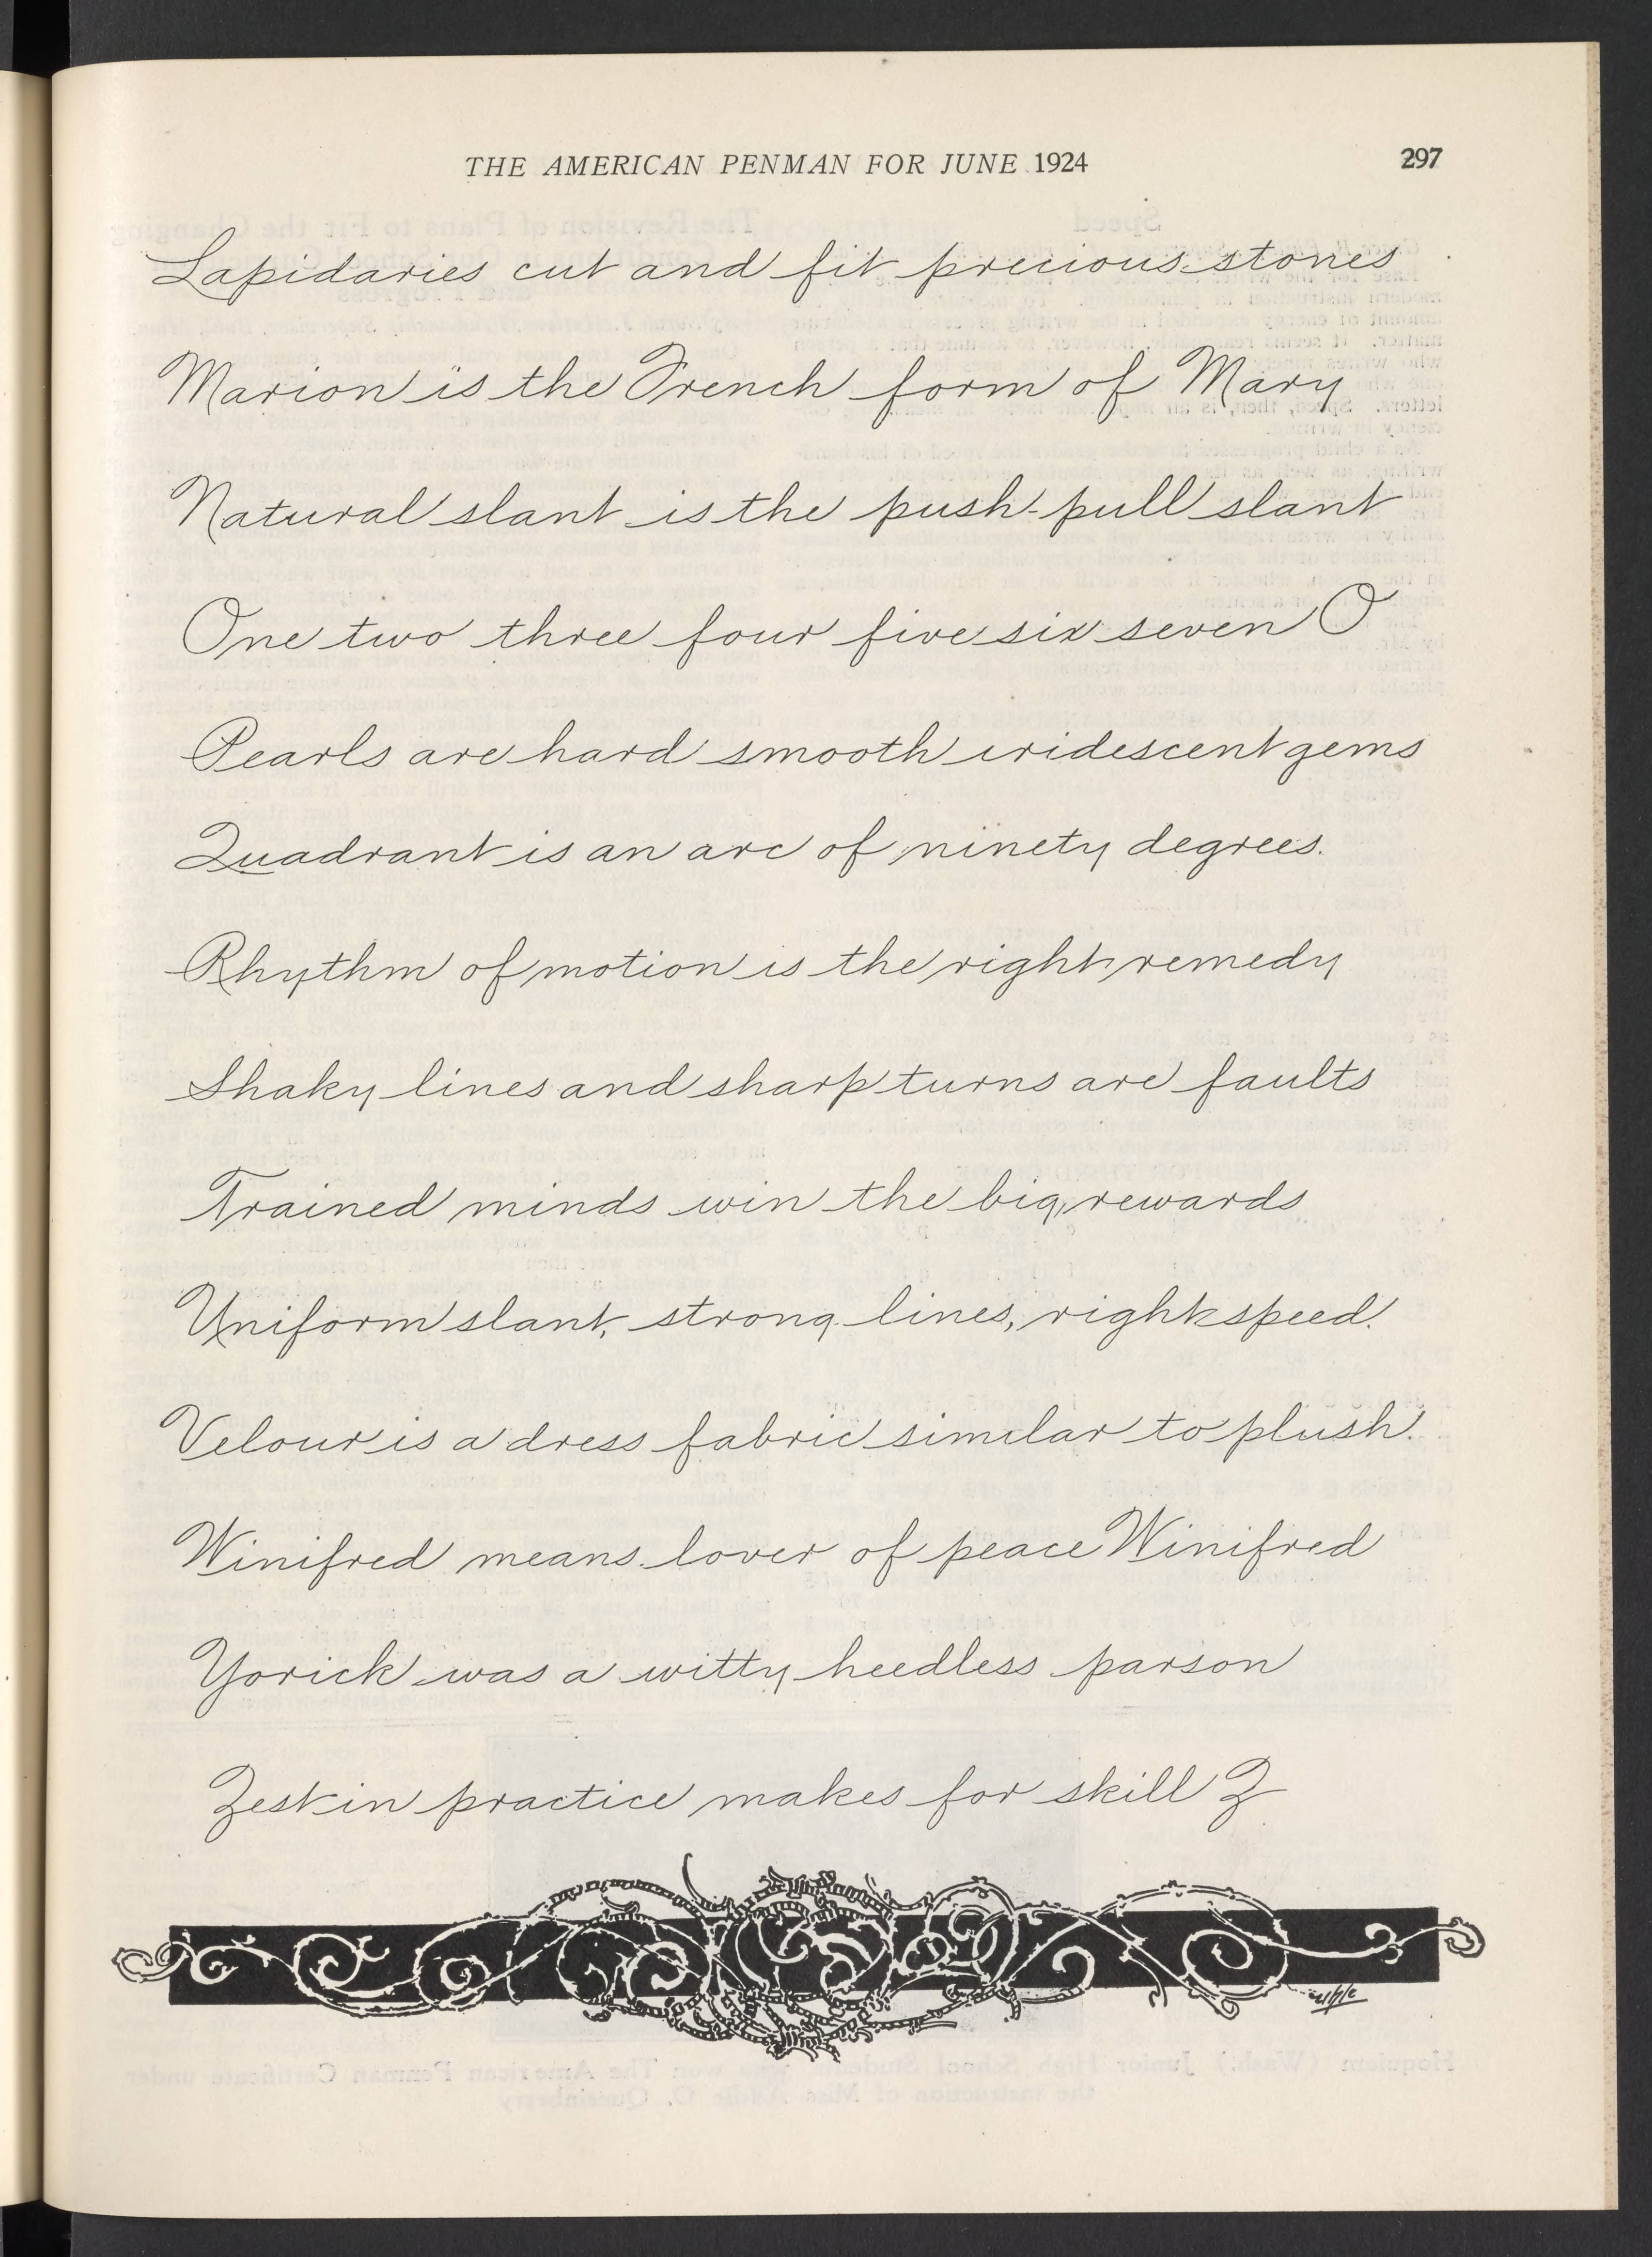 THE AMERICAN PENMAN FOR JUNE 1924 297
Lapidaries cut and fit precious stones
Marion is the French form of Mary
Natural slant is the push-pull slant
One two three four five six seven O
Pearls are hard smooth iridescent gems
Quadrant is an arc of ninety degrees.
Rhythm of motion is the right remedy
Shaky lines and sharp turns are faults
Trained minds win the big rewards
Uniform slant, strong lines, right speed.
Velour is a dress fabric similar to plush.
Winifred means lover of peace Winifred
Yorick was a witty heedless parson
Zest in practice makes for skill Z